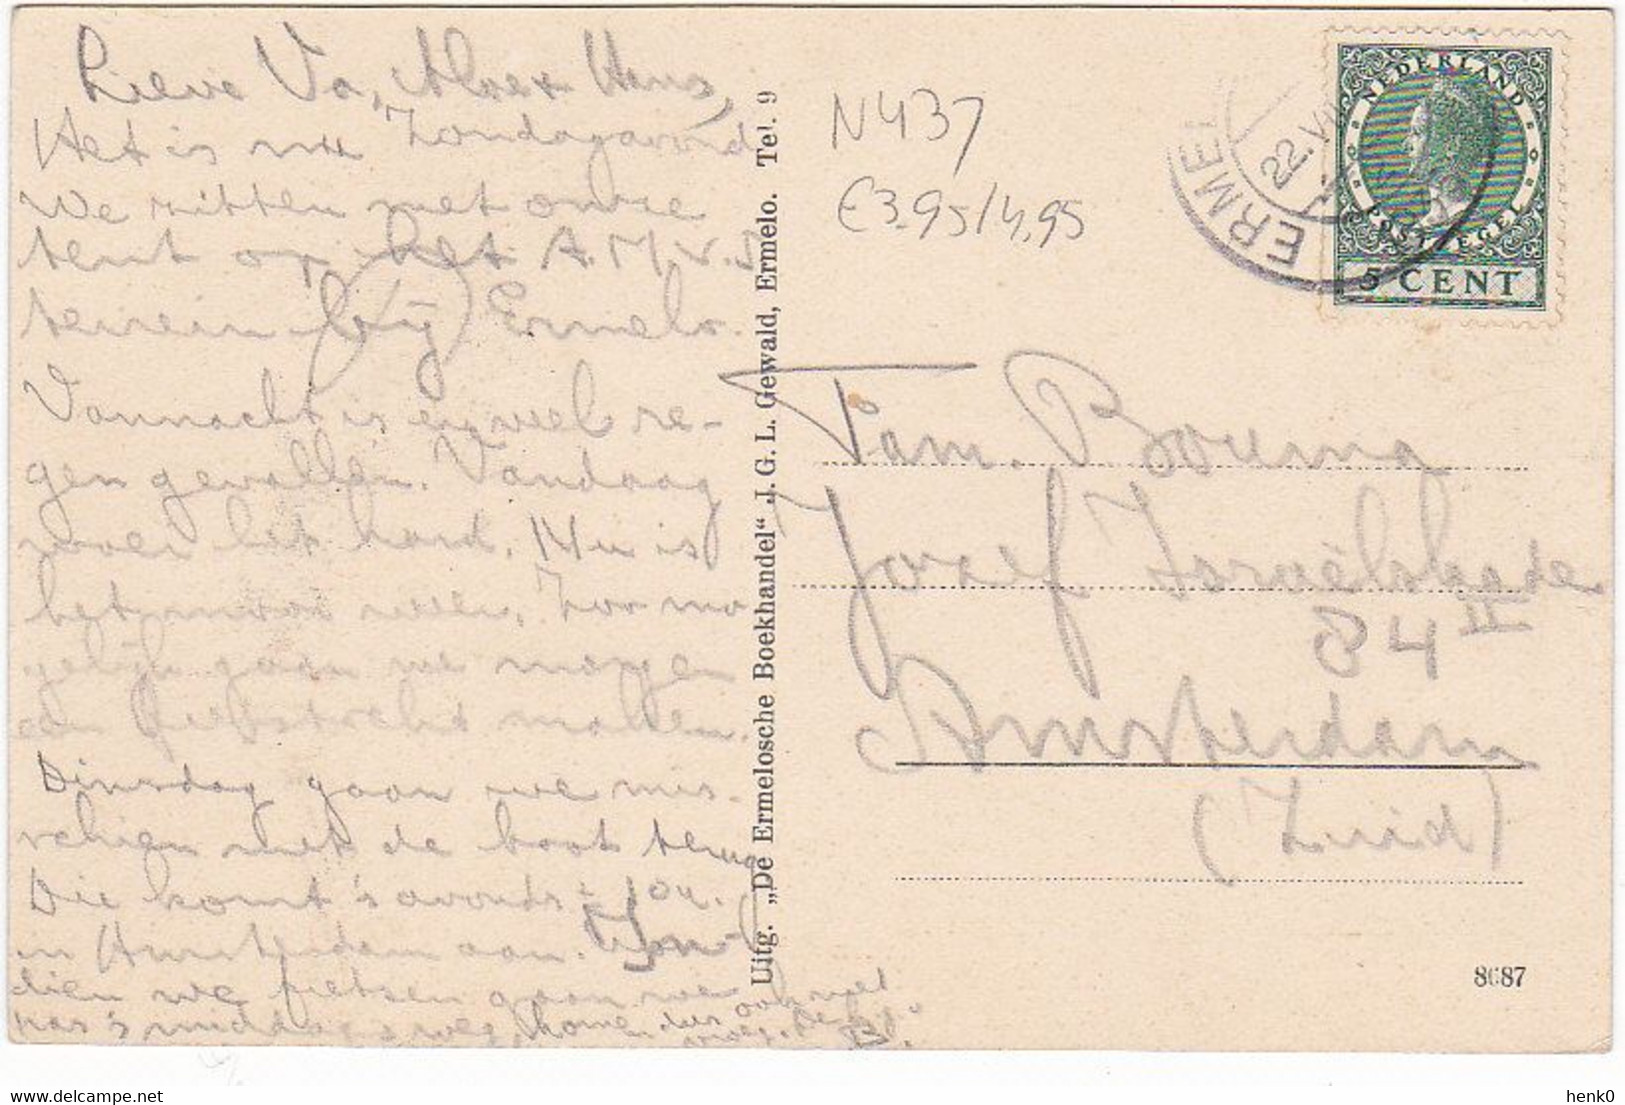 Lieve Va, Hens,
Het is nu Zondagavond
We zitten met onze
tent op het A.M.V.J.
terrein bij Ermelo.
Vannacht is er veel re-
gen gevallen. Vandaag
woei het hard. Nu is
het mooi weer. Zoo mo
gelijk gaan we morgen
een fietstocht maken.
Dinsdag gaan we mis-
schien met de boot terug
Die komt 's avonds ± 10 u.
in Amsterdam aan. In-
dien we fietsen gaan we ook niet
's middags weg, komen dus
Uitg. „De Ermelosche Boekhandel" J. G. L. Gewald, Ermelo. Tel. 9
N437
€3.95/4.95
ERMEL
22.VI
NEDERLAND
POSTZEGEL
5 CENT
Fam. Bouma
Jozef Israëlskade
84 II
Amsterdam
(Zuid)
8687
henk0